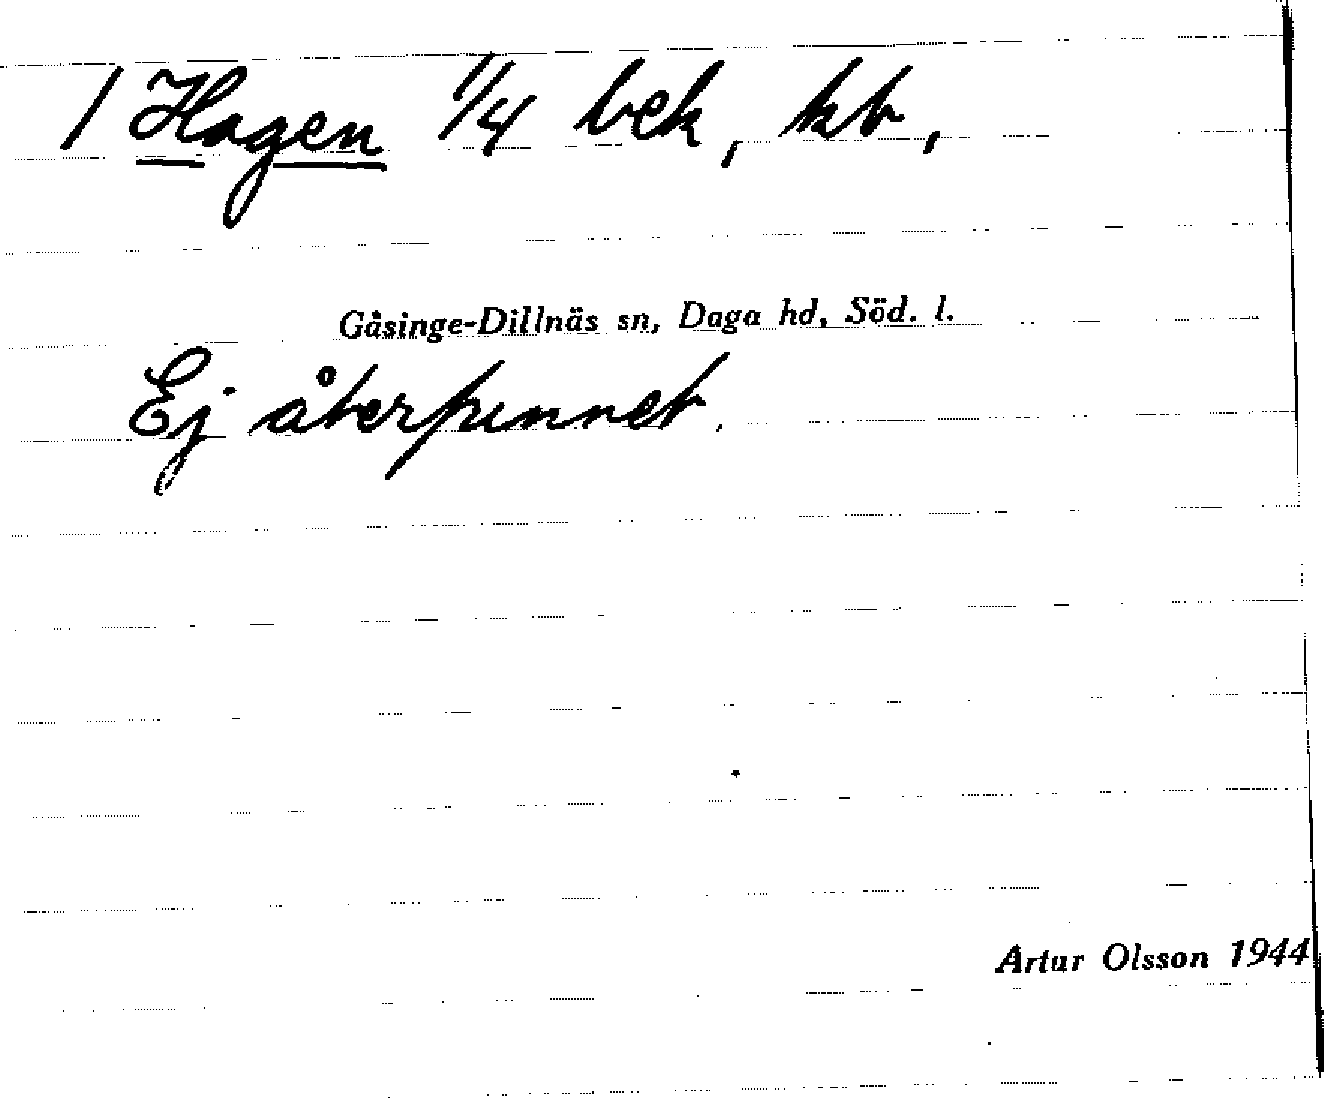 / Hagen 1/4 bek, kb,
Gåsinge-Dillnäs sn, Daga hd, Söd. l.
Ej återfunnet.
Artur Olsson 1944